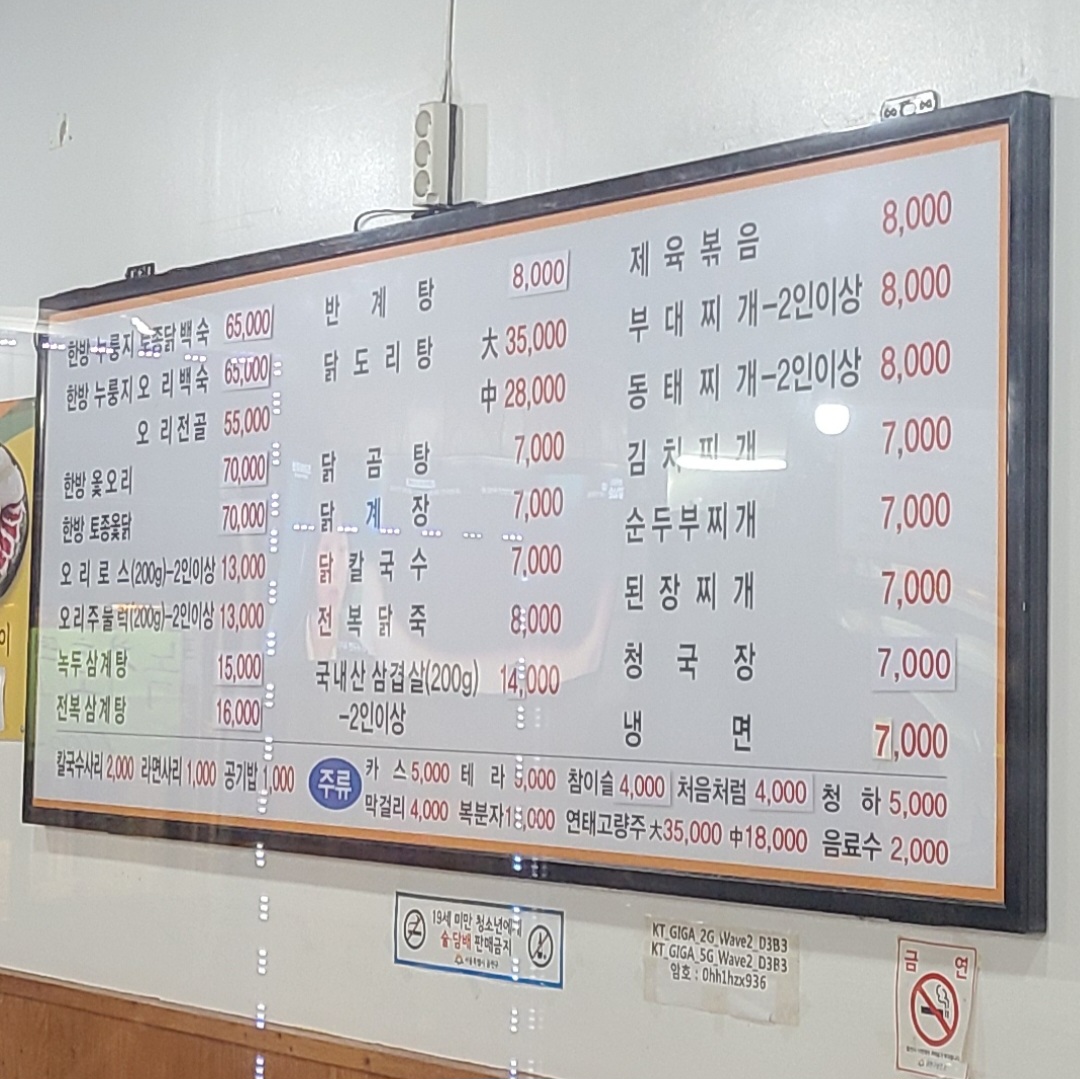 한방 누룽지 토종닭 백숙 65,000
한방 누룽지 오리백숙 65,000
오리전골 55,000
한방 옻오리 70,000
한방 토종옻닭 70,000
오리로스(200g)-2인이상 13,000
오리주물럭(200g)-2인이상 13,000
녹두삼계탕 15,000
전복삼계탕 16,000
반계탕 8,000
닭도리탕 大 35,000
中 28,000
닭곰탕 7,000
닭계장 7,000
닭칼국수 7,000
전복닭죽 8,000
국내산 삼겹살(200g) 14,000
-2인이상
제육볶음 8,000
부대찌개-2인이상 8,000
동태찌개-2인이상 8,000
김치찌개 7,000
순두부찌개 7,000
된장찌개 7,000
청국장 7,000
냉면 7,000
칼국수사리 2,000 라면사리 1,000 공기밥 1,000
주류
카스 5,000 테라 5,000 참이슬 4,000 처음처럼 4,000 청하 5,000
막걸리 4,000 복분자 연태고량주 大35,000 中18,000 음료수 2,000
이
19세 미만 청소년에게
술·담배 판매금지
KT_GIGA_2G_Wave2_D3B3
KT_GIGA_5G_Wave2_D3B3
암호 : 0hh1hzx936
금연